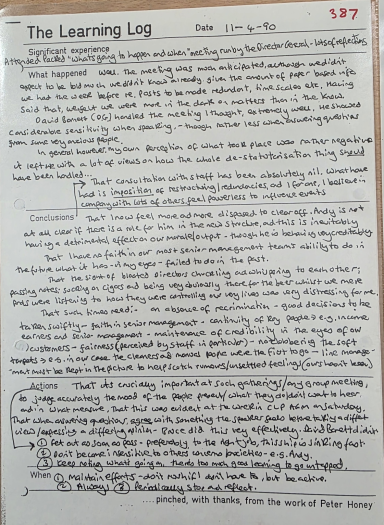 387
The Learning Log Date 11-4-90
Significant experience
Attended packed "what's going to happen and when" meeting run by the Director General - lots of reflecting
What happened Well. The meeting was much anticipated, although we didn't
expect to be told much we didn't know already given the amount of paper based info
we had the week before re. posts to be made redundant, time scales etc. Having
said that, most of us were more in the dark on matters than in the know.
David Barrett (DG) handled the meeting I thought, extremely well. He showed
considerable sensitivity when speaking, - though rather less when answering questions
from some very anxious people.
In general however, my own perception of what took place was rather negative
it left me with a lot of views on how the whole de-statutorisation thing should
have been handled...
→ That consultation with staff has been absolutely nil. What we have
had is imposition of restructuring/redundancies, and I for one, I believe in
company with lots of others feel powerless to influence events
Conclusions That I now feel more and more disposed to clear off. Andy is not
at all clear if there is a role for him in the new structure and this is inevitably
having a detrimental effect on our morale/output - though he is behaving very creditably
That I have no faith in our most senior management team's ability to do in
the future what it has - in my eyes - failed to do in the past.
That the sight of bloated Directors chuckling and whispping to each other;
passing notes; sucking on cigars and being very obviously there for the beer whilst we mere
prols were listening to how they were controlling our very lives was very distressing for me.
That such times need:- an absence of recrimination - good decisions to be
taken swiftly - faith in senior management - continuity of key people e.g. income
earners and senior management - maintenance of credibility in the eyes of our
customers - fairness (perceived by staff in particular) - not clobbering the soft
targets e.g. in our case the cleaners and manual people were the first to go - line manage-
ment must be kept in the picture to help scotch rumours/unsettled feeling (ours hasn't been)
Actions That it's crucially important at such gatherings/any group meeting,
to judge accurately the mood of the people present/what they do/don't want to hear
and in what measure. That this was evident at the week in
That when answering questions, agree with something the speaker said before taking a different
view/expressing a differing opinion - Peace did this very effectively. David Barrett didn't
→ (1) Get out as soon as poss - preferably to the Agency. This ship is sinking fast
(2) Don't become insensitive to others worries/anxieties - e.g. Andy.
(3) Keep noting what's going on, there's too much good learning to go untapped.
When (1) Maintain efforts - don't rush if I don't have to, but be active.
(2) Always (3) Periodically stop and reflect.
.....pinched, with thanks, from the work of Peter Honey